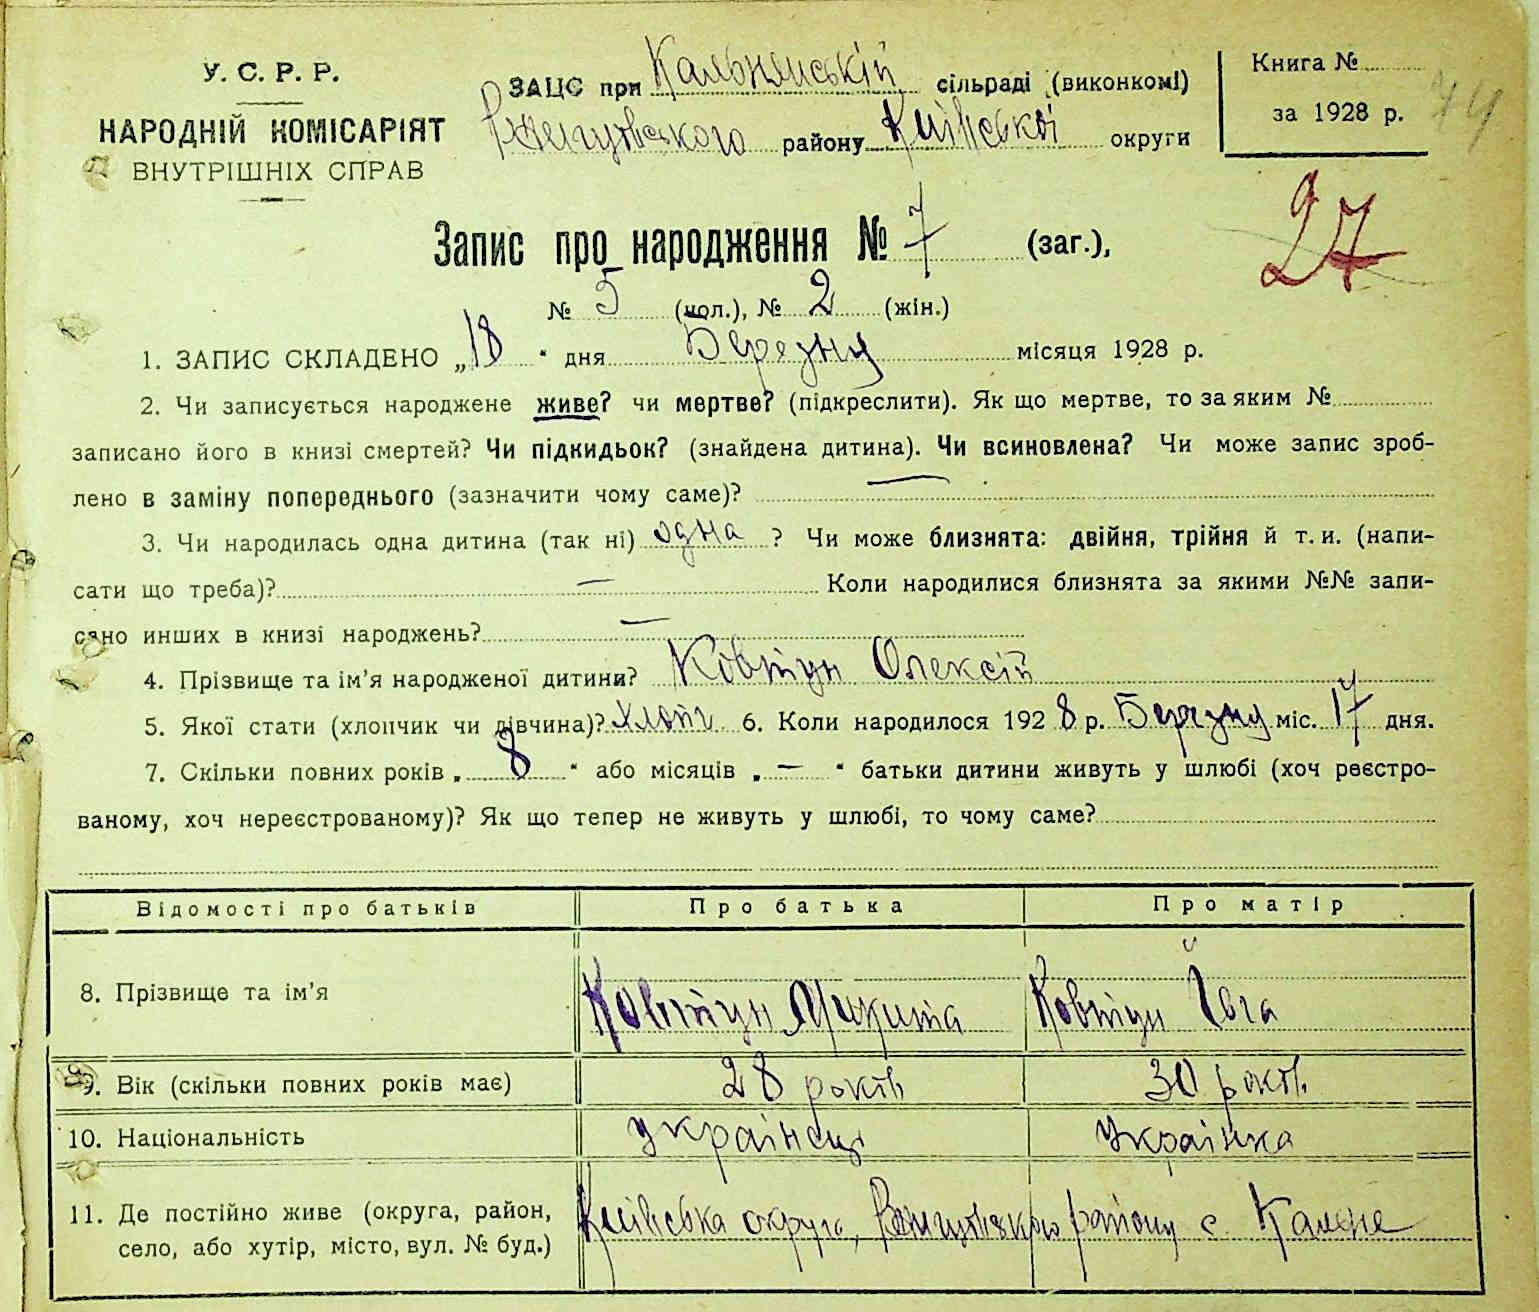 У. С. Р. Р.
НАРОДНІЙ КОМІСАРІЯТ
ВНУТРІШНІХ СПРАВ
ЗАЦС при Кальнянській сільраді (виконкомі)
району Київської округи
Книга №
за 1928 р.
74
27
Запис про народження № 7 (заг.),
№ 5 (чол.), № 2 (жін.)
1. ЗАПИС СКЛАДЕНО „18 " дня Березня місяця 1928 р.
2. Чи записується народжене живе? чи мертве? (підкреслити). Як що мертве, то за яким №
записано його в книзі смертей? Чи підкидьок? (знайдена дитина). Чи всиновлена? Чи може запис зроб-
лено в заміну попереднього (зазначити чому саме)? —
3. Чи народилась одна дитина (так ні) одна ? Чи може близнята: двійня, трійня й т. и. (напи-
сати що треба)? — Коли народилися близнята за якими №№ запи-
сано инших в книзі народжень? —
4. Прізвище та ім'я народженої дитини? Ковтун Олексій
5. Якої стати (хлопчик чи дівчина)? хлопч 6. Коли народилося 1928 р. Березня міс. 17 дня.
7. Скільки повних років „ 8 " або місяців „ — " батьки дитини живуть у шлюбі (хоч реєстро-
ваному, хоч нереєстрованому)? Як що тепер не живуть у шлюбі, то чому саме?
Відомості про батьків Про батька Про матір
8. Прізвище та ім'я Ковтун Микита Ковтун Йвга
9. Вік (скільки повних років має) 28 років 30 років
10. Національність українец українка
11. Де постійно живе (округа, район, Київська округа, району с. Кальне
село, або хутір, місто, вул. № буд.)